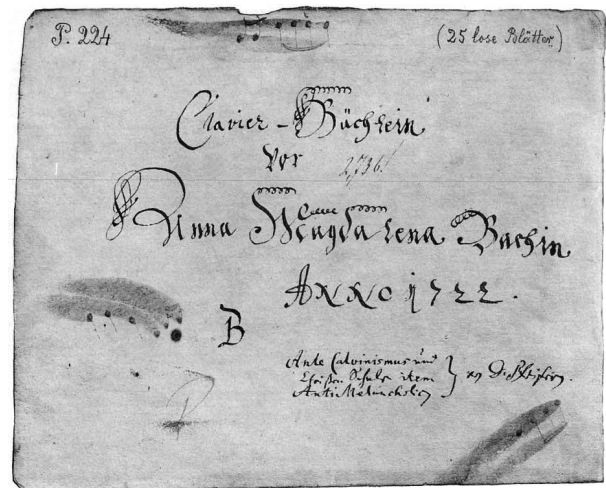 P. 224
(25 lose Blätter)
Clavier-Büchlein
vor
Anna Magdalena Bachin
ANNO 1722.
B
Ante Calvinismus und
Schule item
Anti Melancholicus